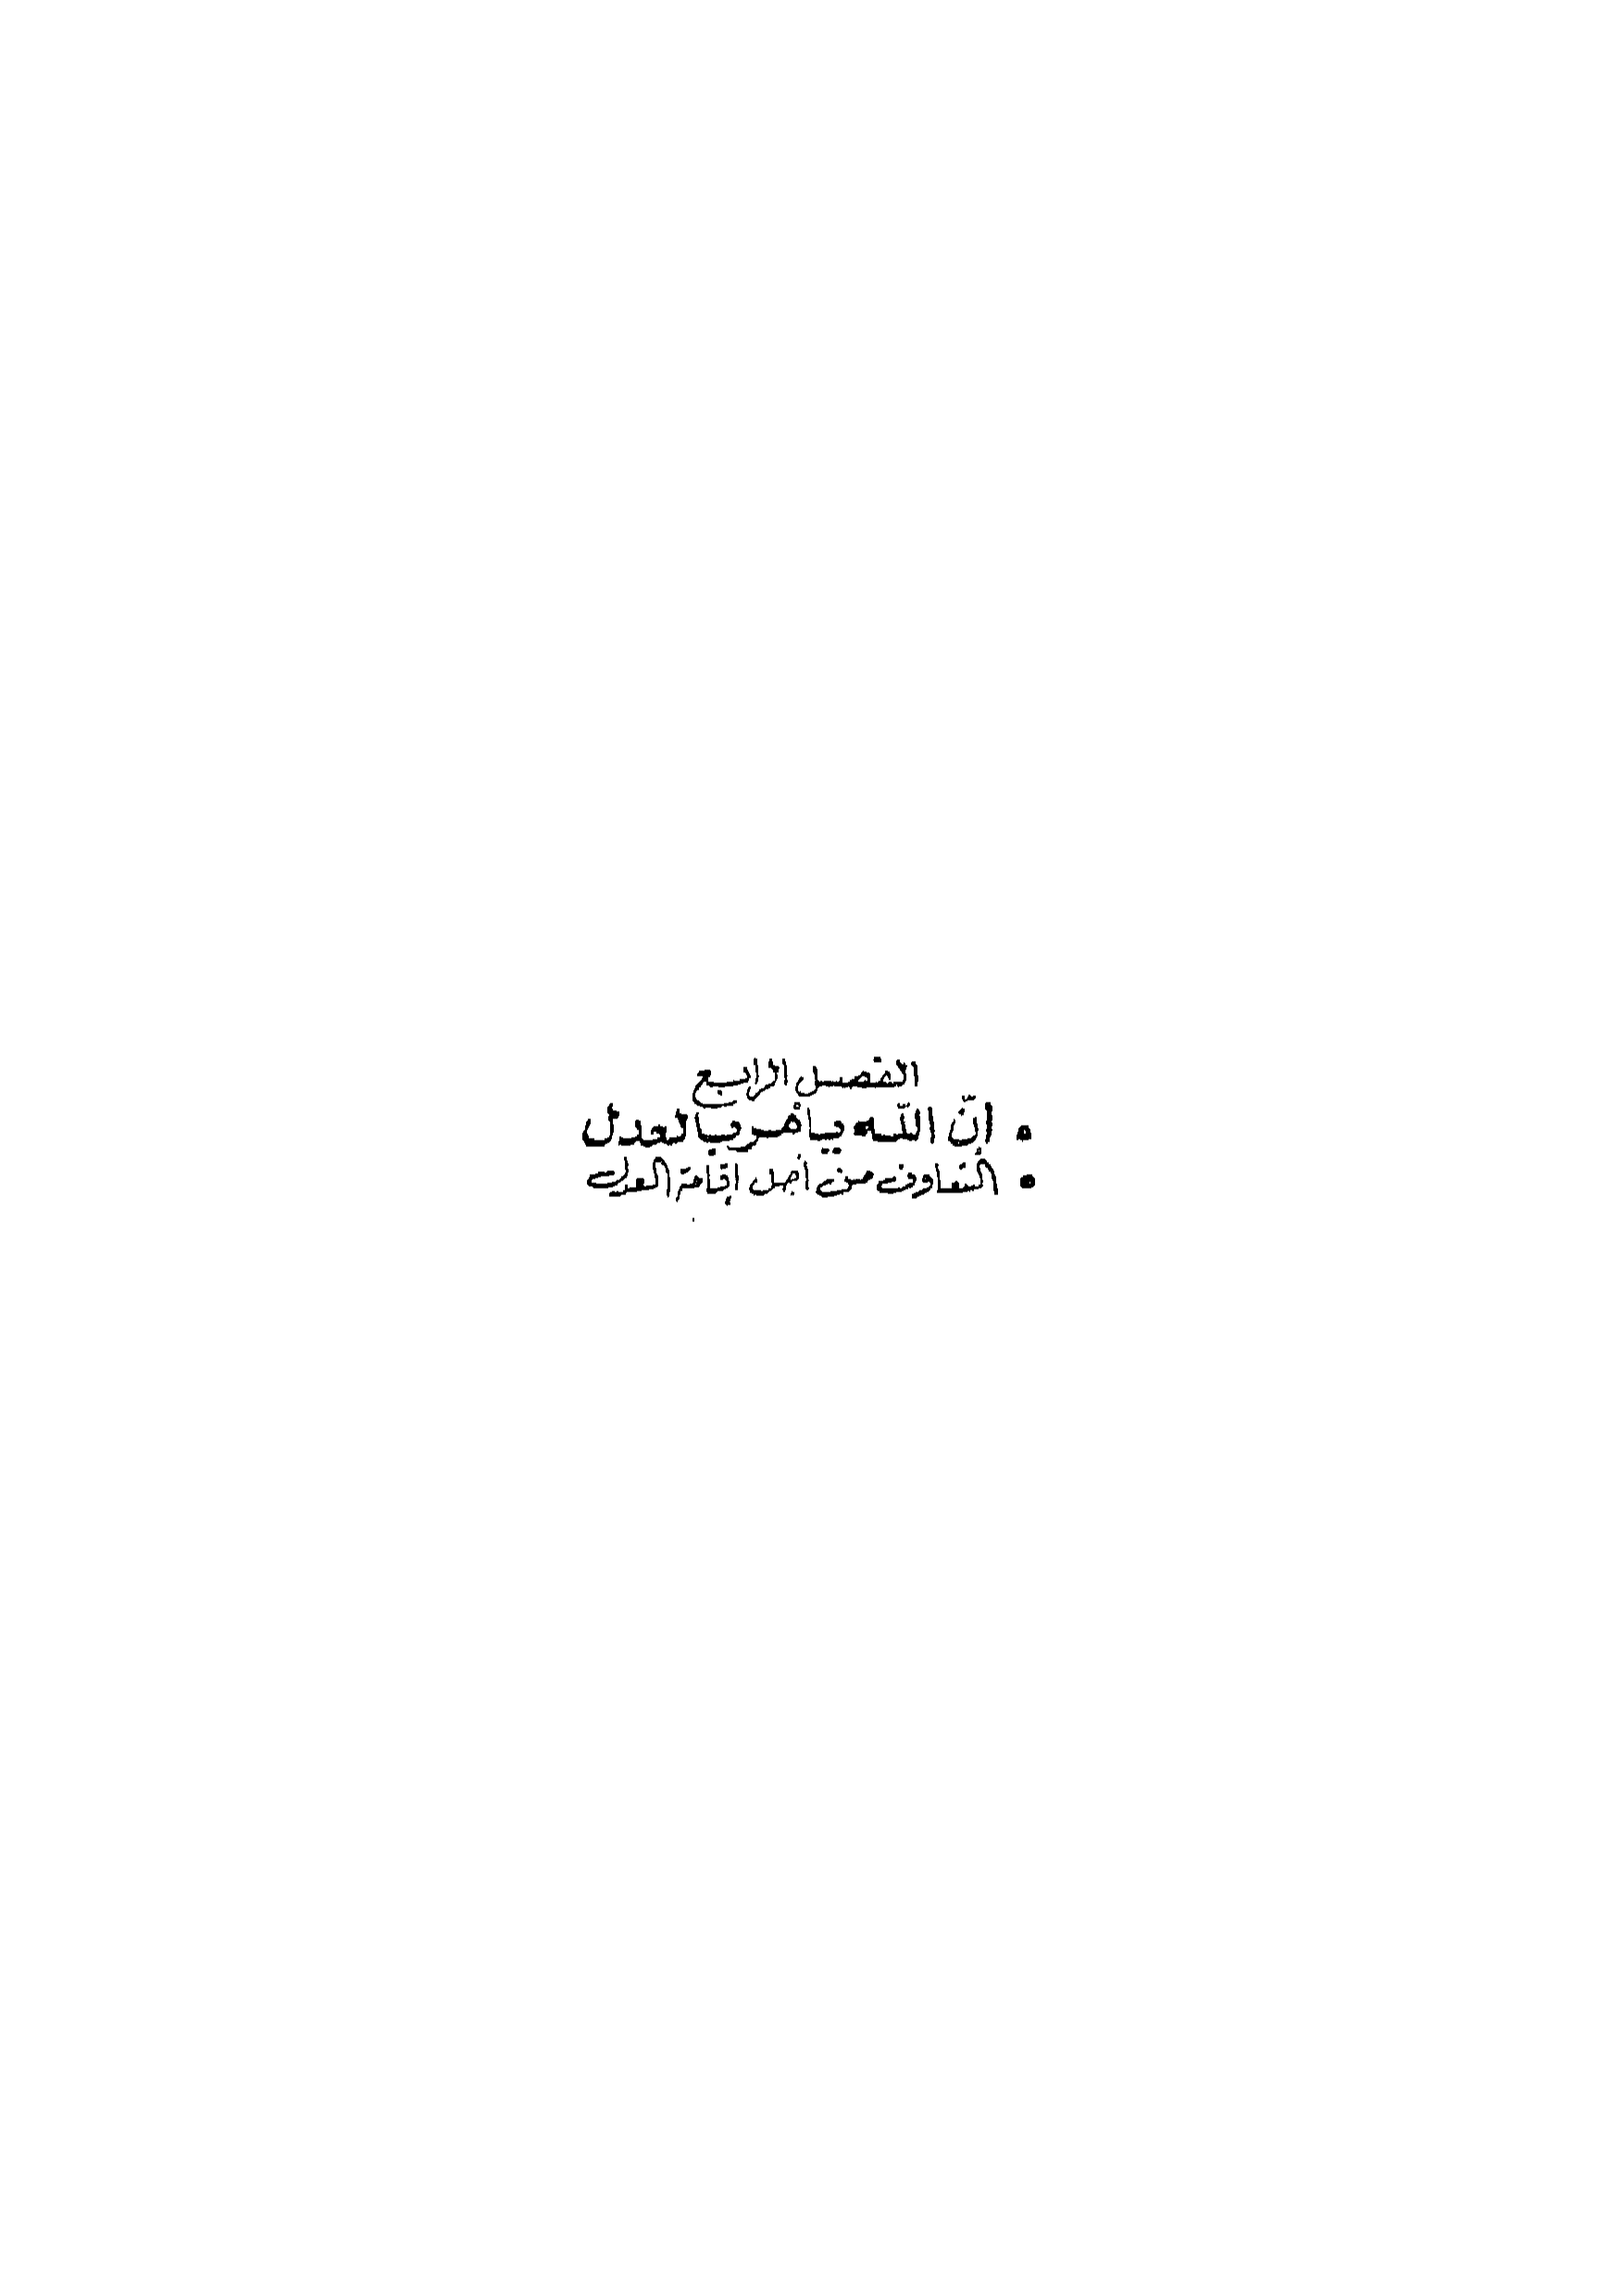 الفصل الرابع
• إنّ اللّه يأمر بالعدل
• التعاون من أجل إقامة العدل